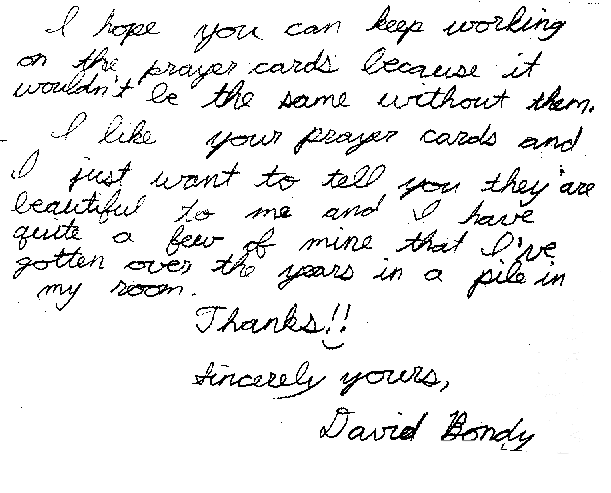 I hope you can keep working
on the prayer cards because it
wouldn't be the same without them.
I like your prayer cards and
I just want to tell you they are
beautiful to me and I have
quite a few of mine that I've
gotten over the years in a pile in
my room.
Thanks!!
Sincerely yours,
David Bondy